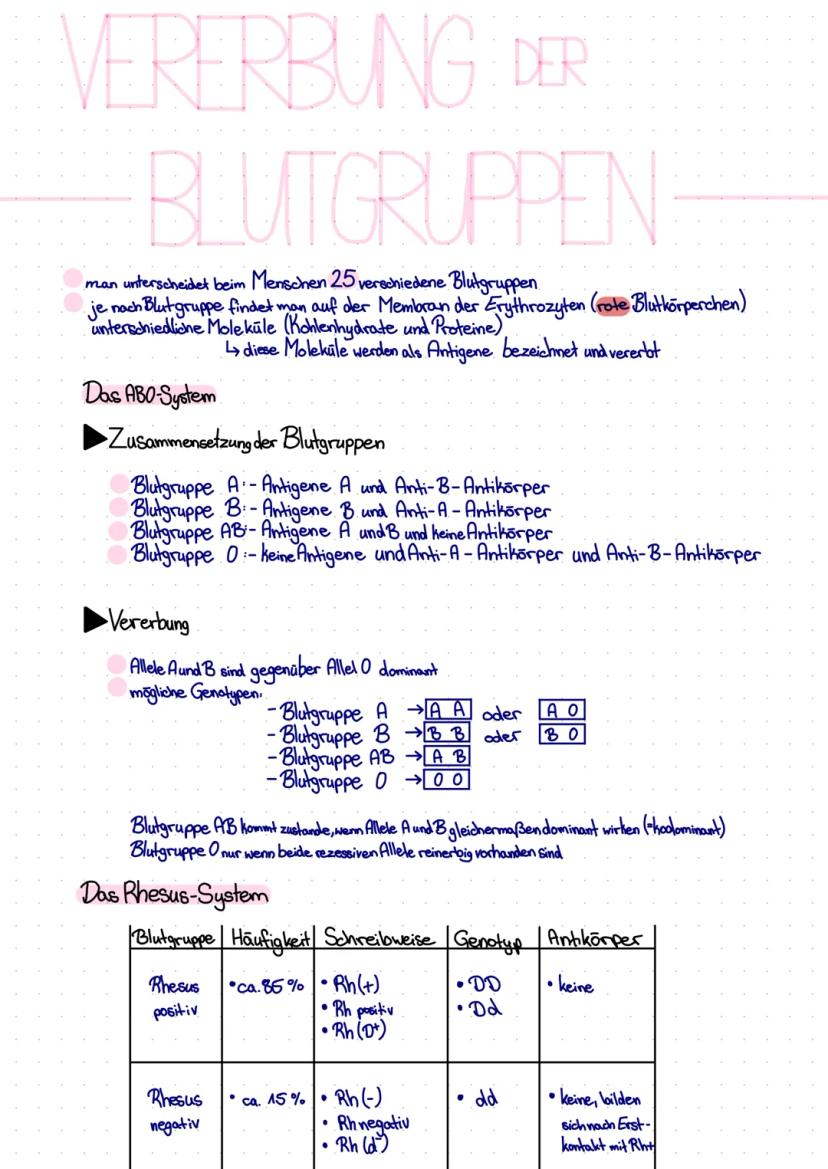 VERERBUNG DER
BLUTGRUPPEN
man unterscheidet beim Menschen 25 verschiedene Blutgruppen
je nach Blutgruppe findet man auf der Membran der Erythrozyten (rote Blutkörperchen)
unterschiedliche Moleküle (Kohlenhydrate und Proteine)
↳ diese Moleküle werden als Antigene bezeichnet und vererbt
Das AB0-System
▶ Zusammensetzung der Blutgruppen
Blutgruppe A:- Antigene A und Anti-B-Antikörper
Blutgruppe B:- Antigene B und Anti-A-Antikörper
Blutgruppe AB:- Antigene A und B und keine Antikörper
Blutgruppe 0:- keine Antigene und Anti-A-Antikörper und Anti-B-Antikörper
▶ Vererbung
Allele A und B sind gegenüber Allel 0 dominant
mögliche Genotypen:
- Blutgruppe A → A A oder A 0
- Blutgruppe B → B B oder B 0
- Blutgruppe AB → A B
- Blutgruppe 0 → 0 0
Blutgruppe AB kommt zustande, wenn Allele A und B gleichermaßen dominant wirken (=kodominant)
Blutgruppe 0 nur wenn beide rezessiven Allele reinerbig vorhanden sind
Das Rhesus-System
Blutgruppe Häufigkeit Schreibweise Genotyp Antikörper
Rhesus • ca. 85% • Rh(+) • DD • keine
positiv • Rh positiv • Dd
• Rh(D+)
Rhesus • ca. 15% • Rh(-) • dd • keine, bilden
negativ • Rh negativ sich nach Erst-
• Rh(d-) kontakt mit Rh+